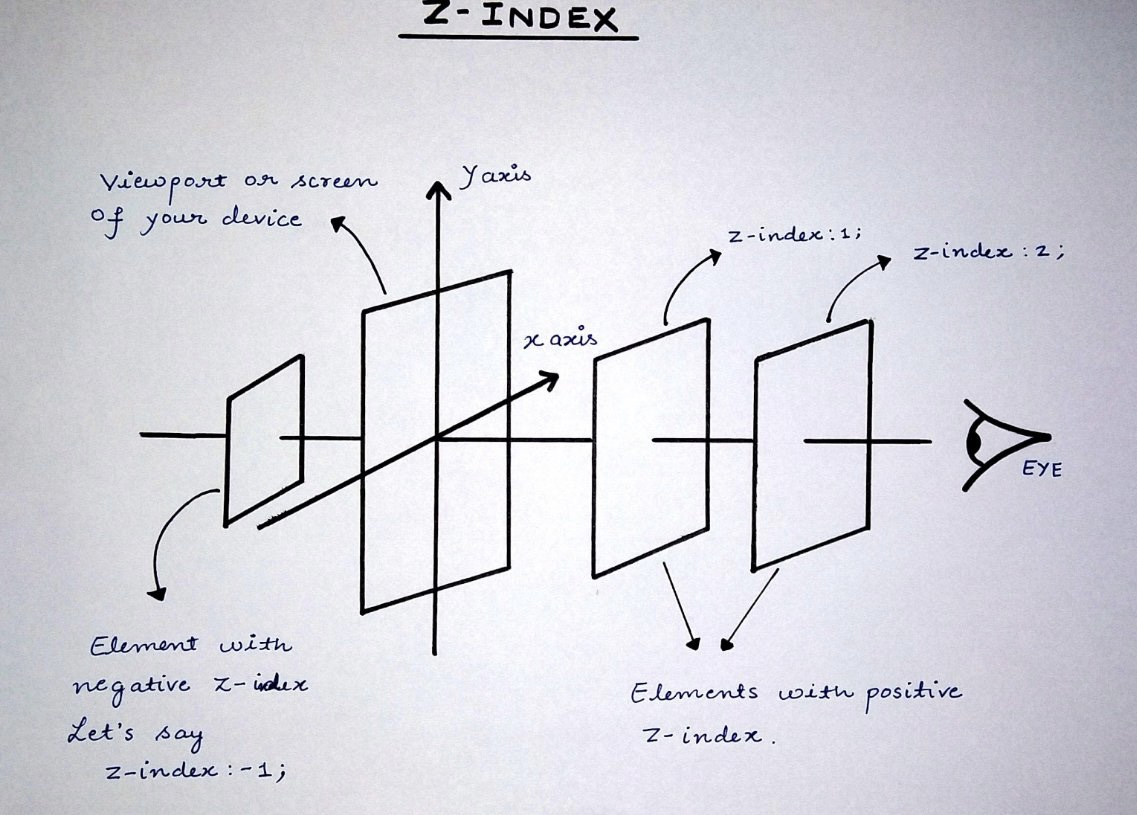 Z-INDEX
Viewport or screen
of your device
y axis
z-index:1;
z-index:2;
x axis
EYE
Element with
negative z-index
Let's say
z-index:-1;
Elements with positive
z-index.